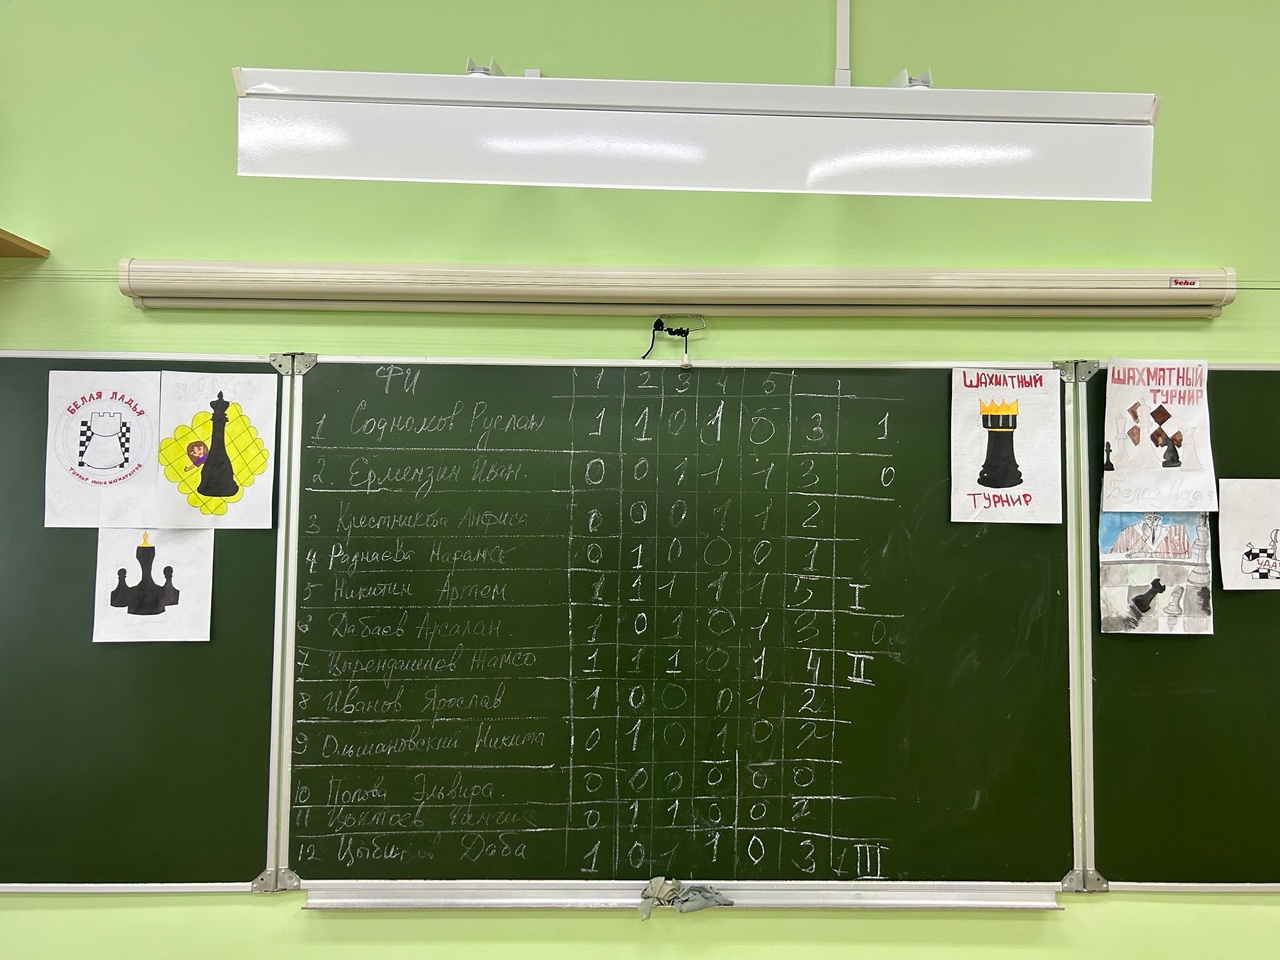 Geha
ФИ 1 2 3 4 5
1 Содномов Руслан 1 1 0 1 0 3 1
2. Ермензин Иван 0 0 1 1 1 3 0
3 Крестникова Анфиса 0 0 0 1 1 2
4 Раднаева 0 1 0 0 0 1
5 Никитин Артем 1 1 1 1 1 5 I
6 Дабаев Арсалан 1 0 1 0 1 3 0
7 Цырендашиев Жамсо 1 1 1 0 1 4 II
8 Иванов Ярослав 1 0 0 0 1 2
9 Ольшановский Никита 0 1 0 1 0 2
10 Попова Эльвира. 0 0 0 0 0 0
11 Цоктоев 0 1 1 0 0 2
12 Цыбиков Даба 1 0 1 1 0 3 1 III
БЕЛАЯ ЛАДЬЯ
ТУРНИР ЮНЫХ ШАХМАТИСТОВ
ШАХМАТНЫЙ
ТУРНИР
ШАХМАТНЫЙ
ТУРНИР
Белая Ладья